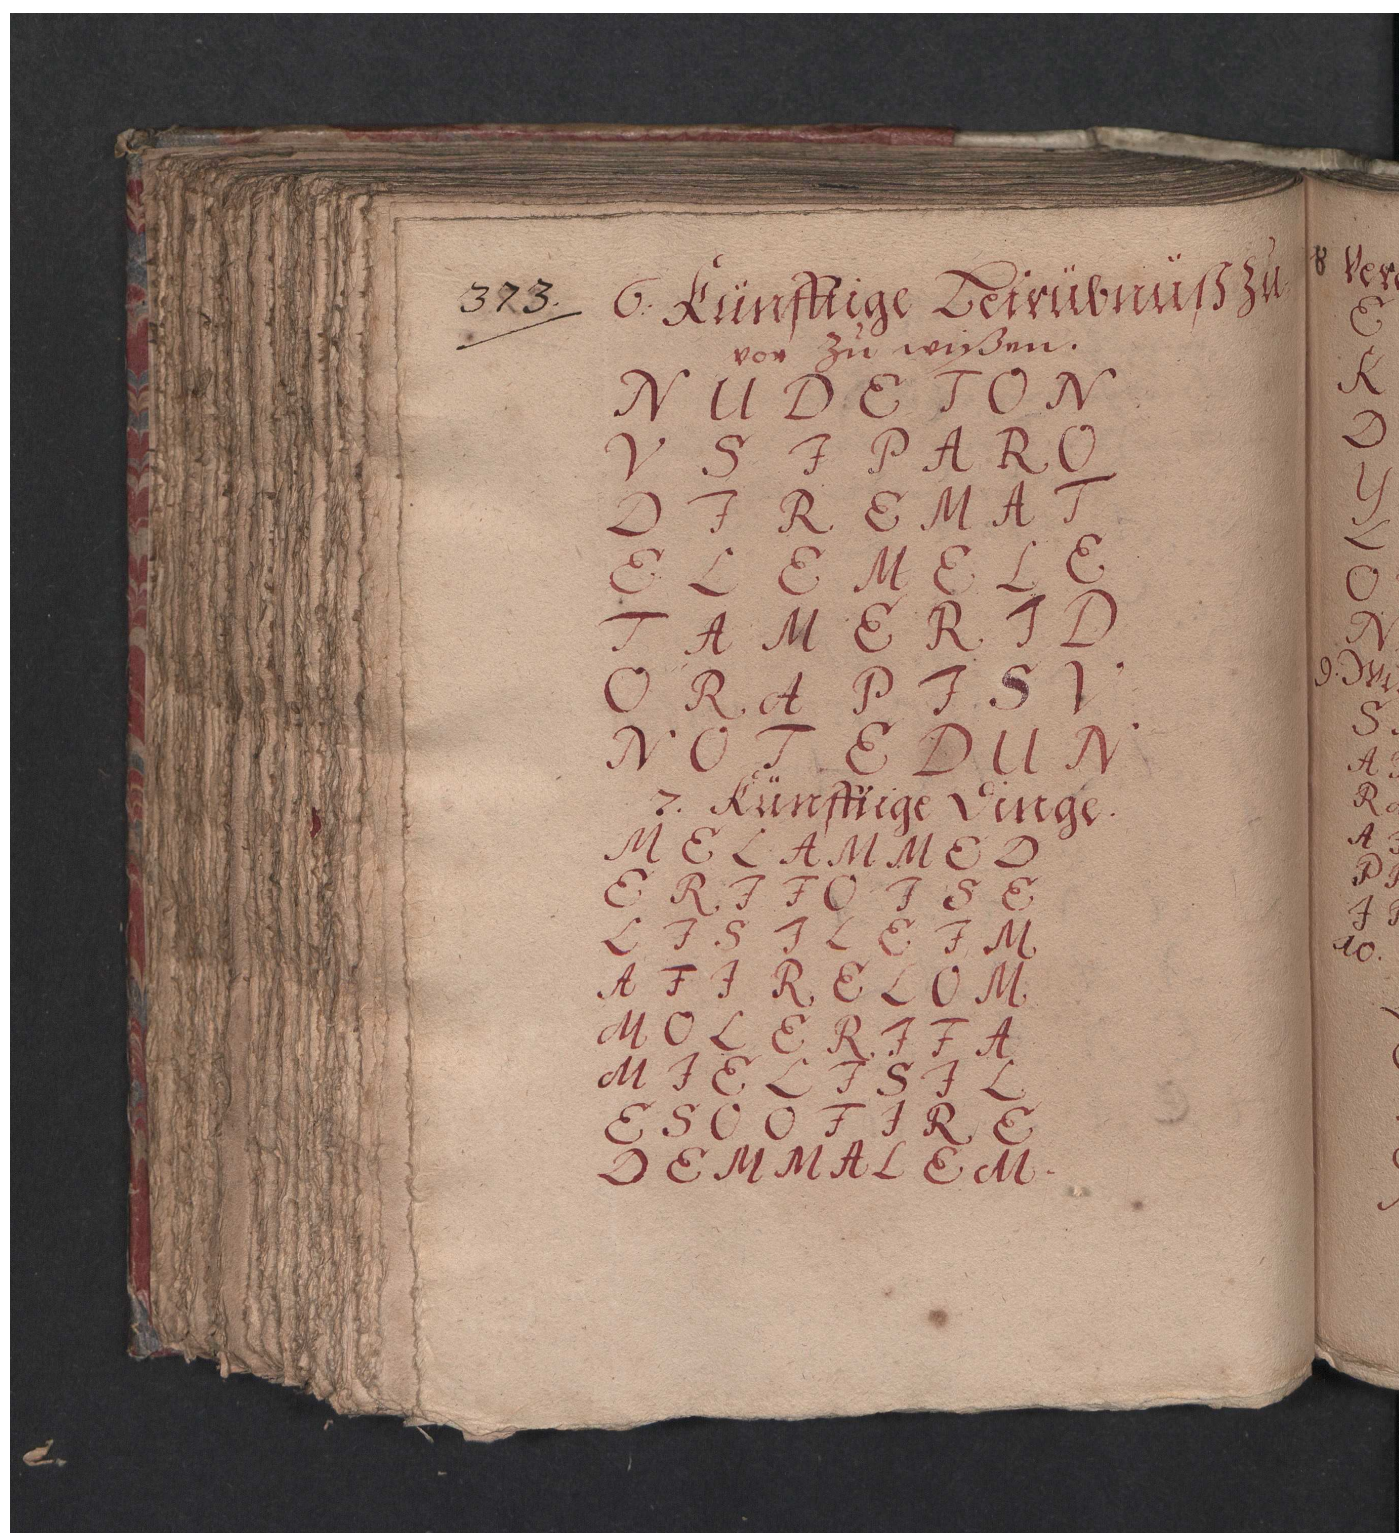 373. 6. Künfftige Beirübnüß zu
vor zu wißen.
N U D E T O N
V S I P A R O
D I R E M A T
E L E M E L E
T A M E R I D
O R A P I S V
N O T E D U N
7. Künfftige Dinge.
M E L A M M E D
E R I F O I S E
L I S I L E I M
A F I R E L O M
M O L E R I F A
M I E L I S I L
E S O O F I R E
D E M M A L E M.
8 Ver
E
K
D
Y
L
O
N
9.
S
A
R
A
P
I
10.